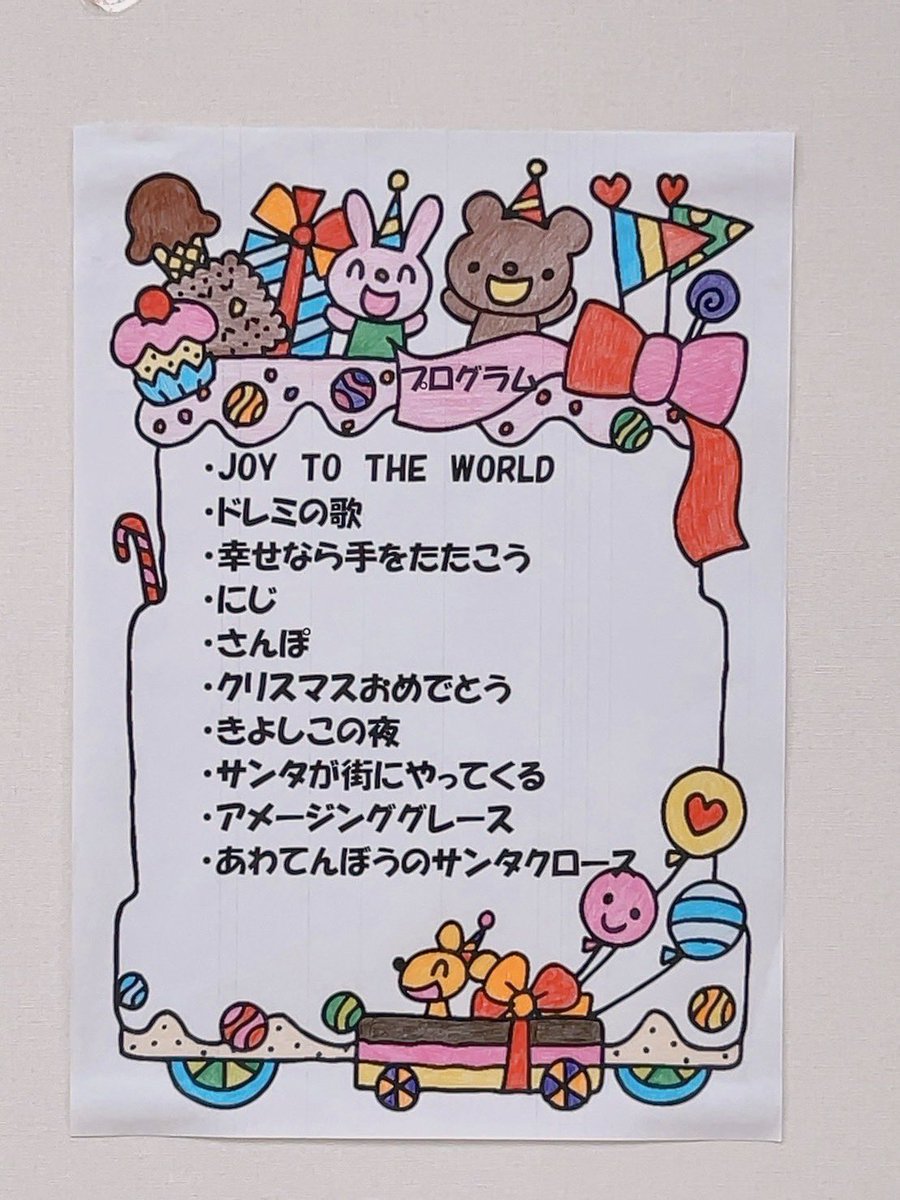 プログラム
・JOY TO THE WORLD
・ドレミの歌
・幸せなら手をたたこう
・にじ
・さんぽ
・クリスマスおめでとう
・きよしこの夜
・サンタが街にやってくる
・アメージンググレース
・あわてんぼうのサンタクロース